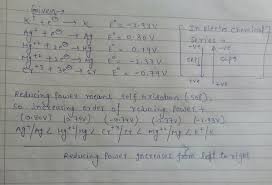 Given →
K⁺ + e⊖ → K E° = -2.93V
Ag⁺ + e⊖ → Ag E° = 0.80V
Hg²⁺ + 2e⊖ → Hg E° = 0.79V
Mg²⁺ + 2e⊖ → Mg E° = -2.37V
Cr³⁺ + 3e⊖ → Cr E° = -0.74V
In electro chemical series →
-ve
+ve
Reducing power means self oxidation (SOP),
So increasing order of reducing power →
(0.80V) (0.79V) (-0.74V) (-2.37V) (-2.93V)
Ag⁺/Ag < Hg²⁺/Hg < Cr³⁺/Cr < Mg²⁺/Mg < K⁺/K
Reducing Power increases from left to right